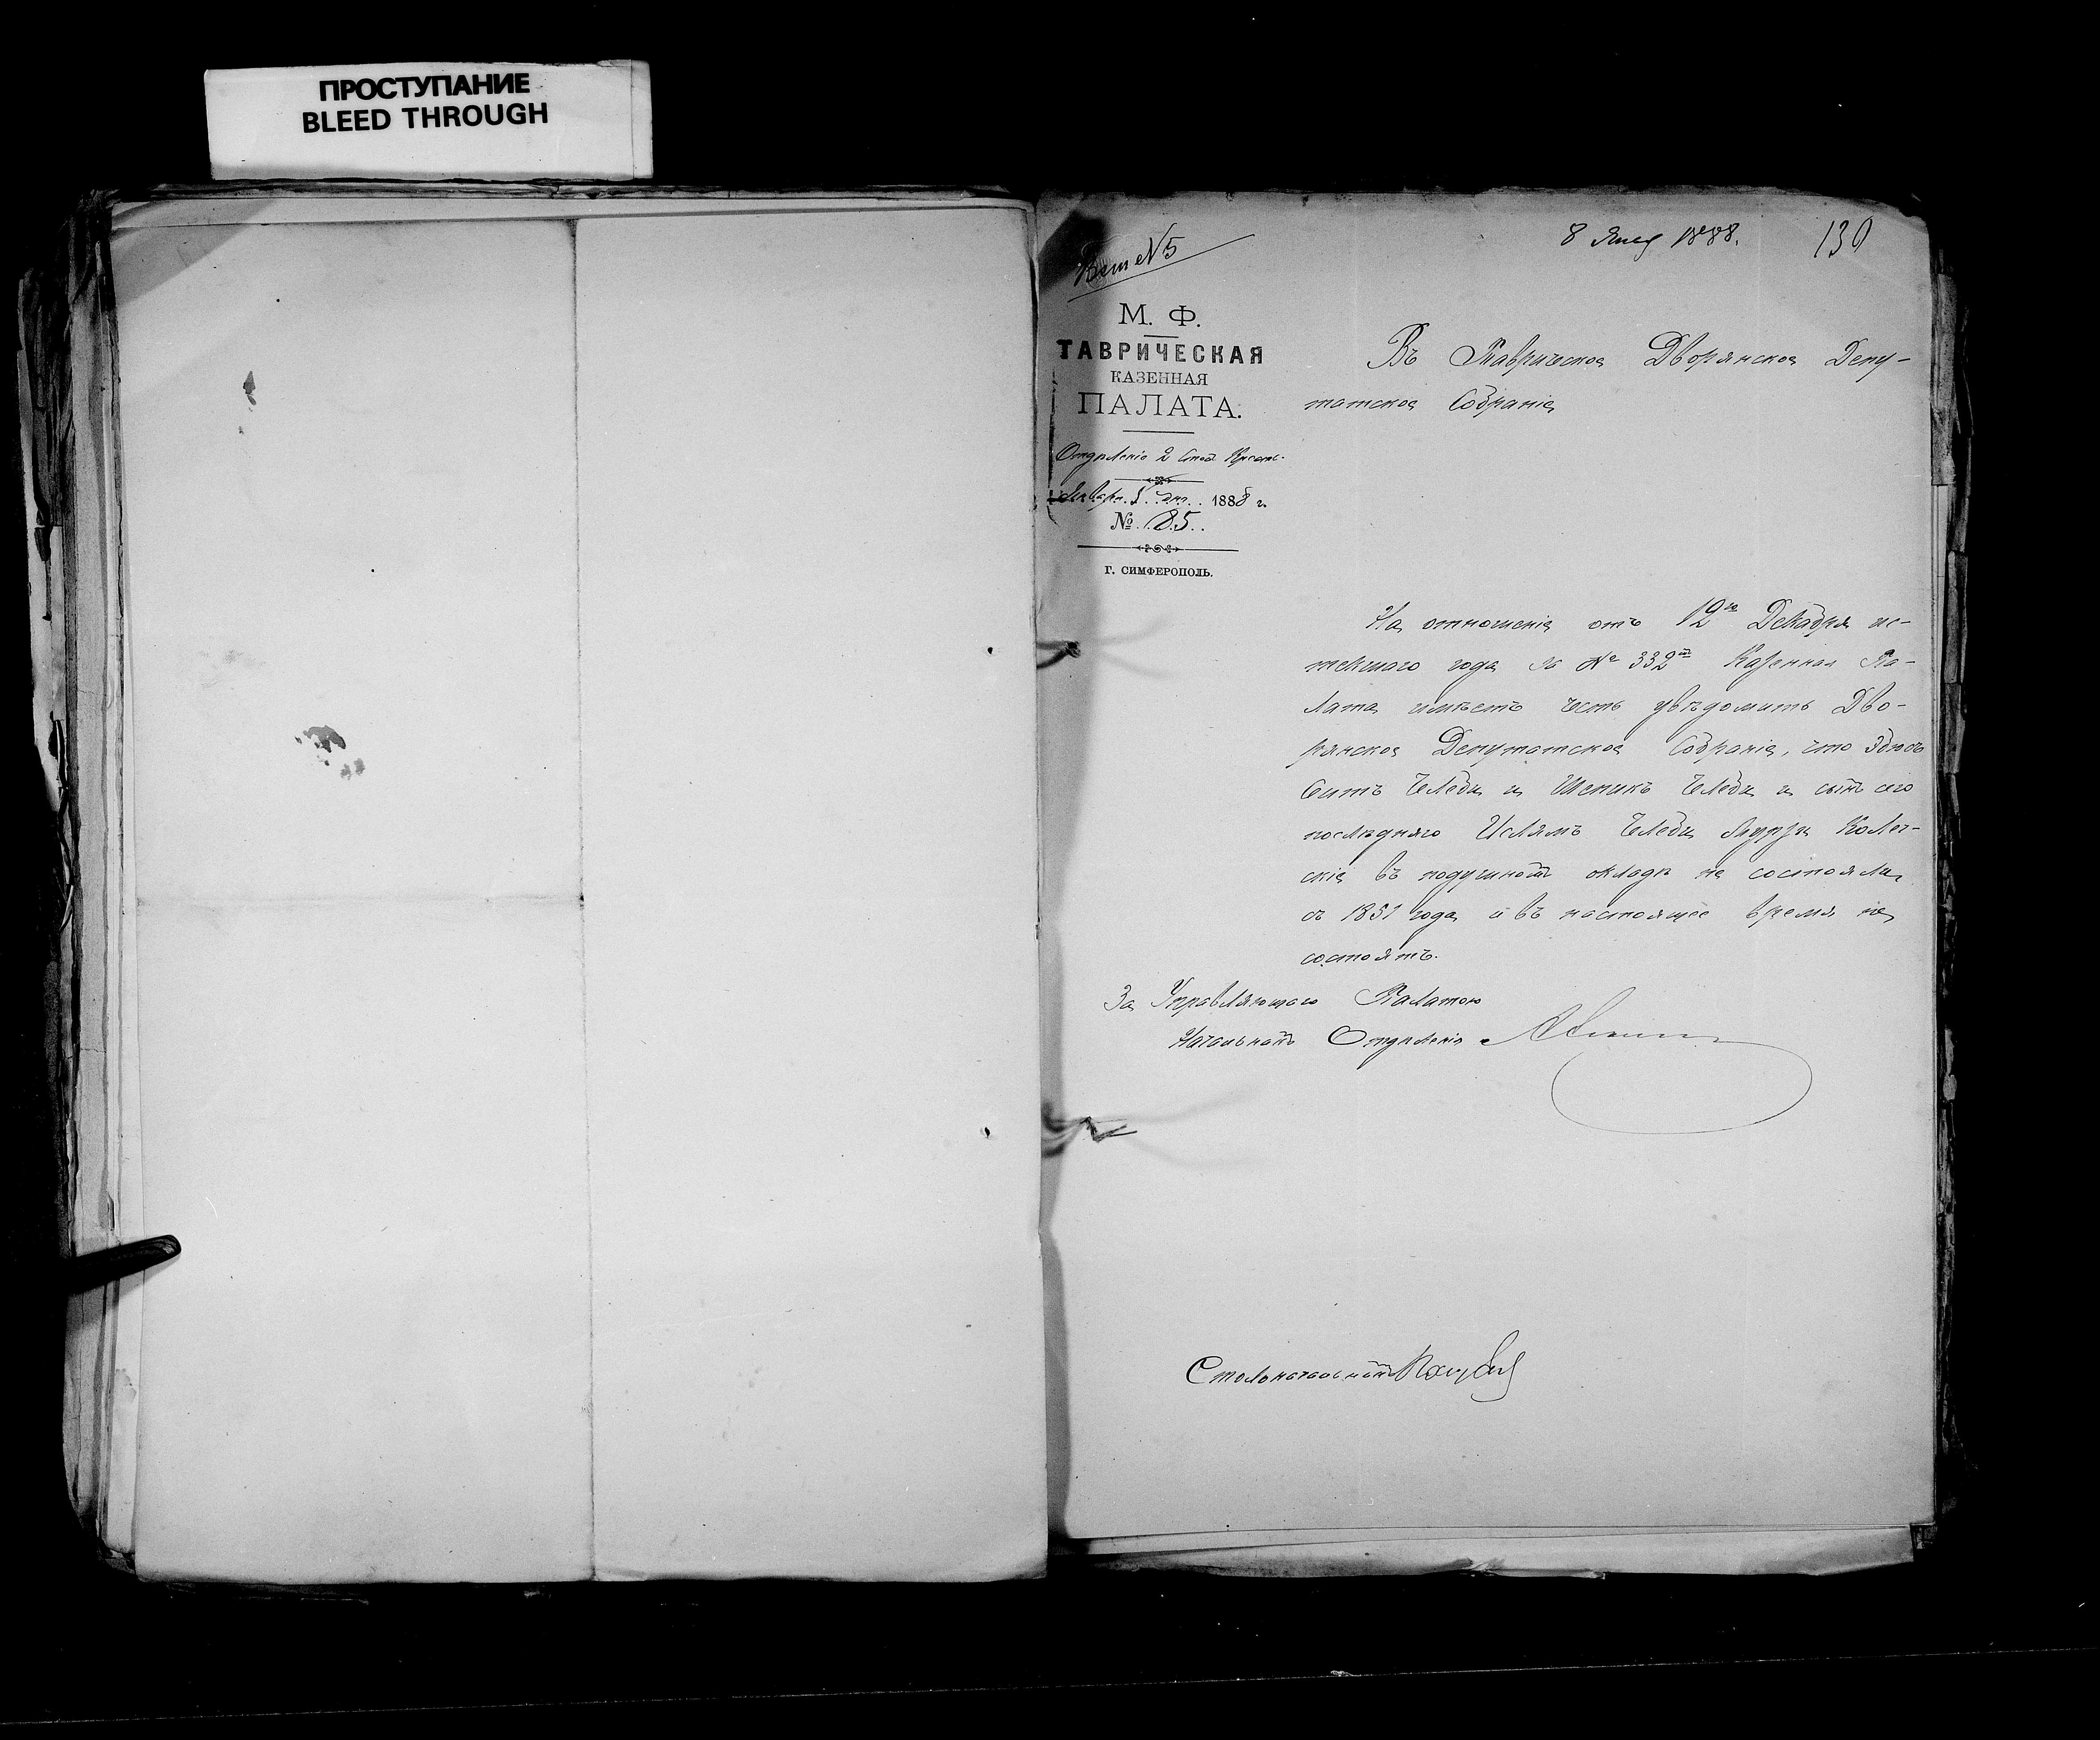 ПРОСТУПАНИЕ
BLEED THROUGH
№ 5
8 Янв 1888.
130
М. Ф.
ТАВРИЧЕСКАЯ
КАЗЕННАЯ
ПАЛАТА.
Отдѣленіе 2
1888 г.
№ 85
Г. СИМФЕРОПОЛЬ.
Въ Таврическое Дворянское Депу-
татское Собраніе
На отношеніе отъ 12го Декабря ис-
текшаго года за № 332мъ Казенная Па-
лата имѣетъ честь увѣдомить Дво-
рянское Депутатское Собраніе, что
Сеитъ Челеби и Челеби и сынъ сего
послѣдняго Ислямъ Челеби Мурзы Колеч-
скіе въ подушномъ окладѣ не состояли
съ 1851 года и въ настоящее время не
состоятъ.
За Управляющаго Палатою
Начальникъ Отдѣленія
Столоначальникъ